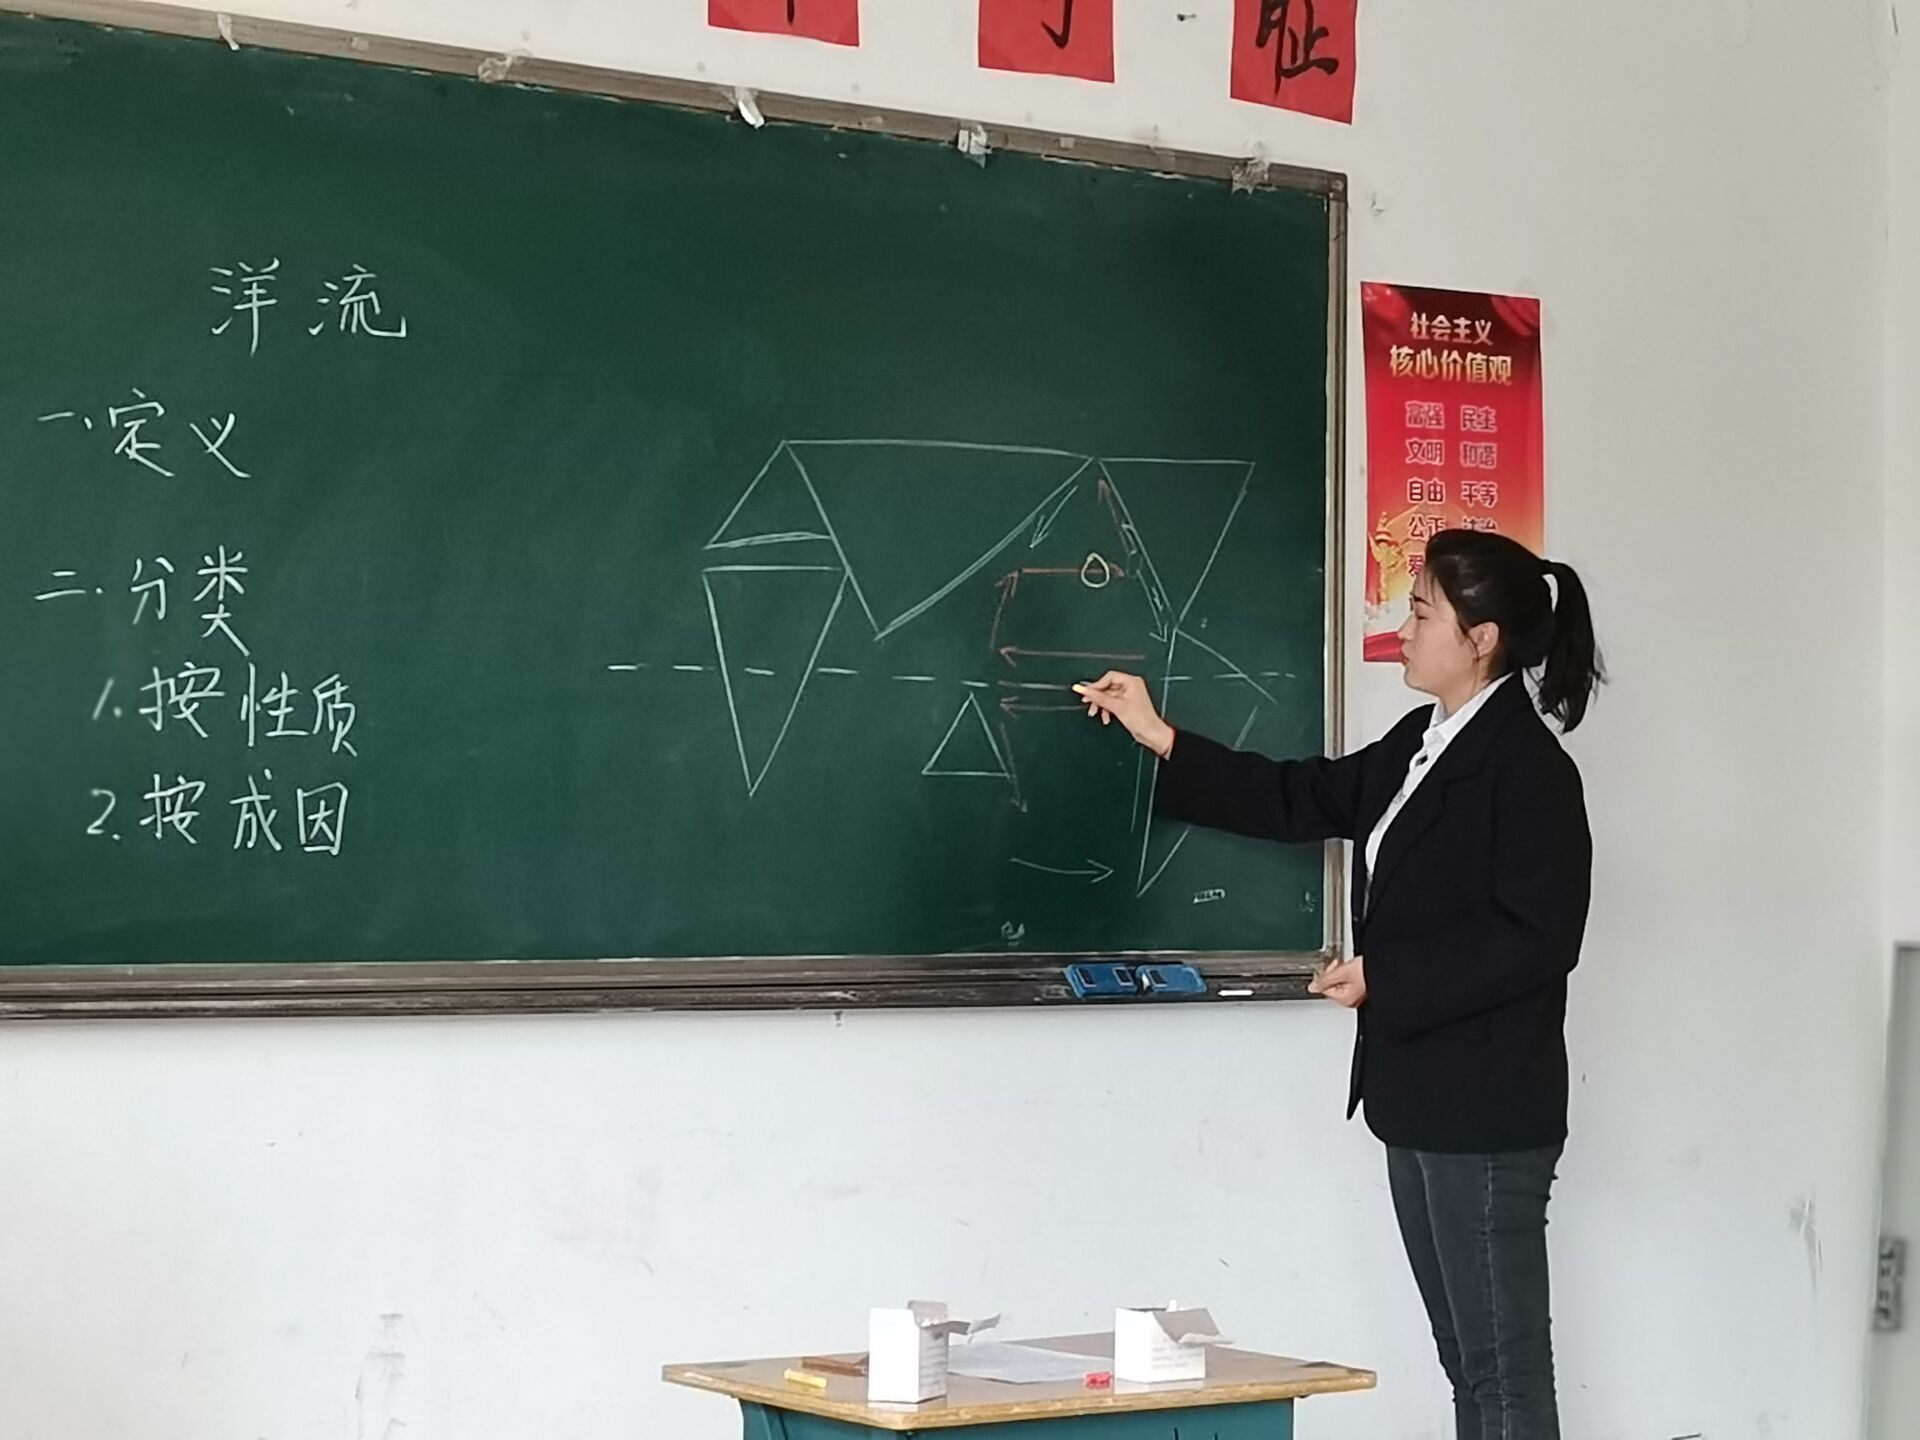 耻
洋流
一、定义
二、分类
1. 按性质
2. 按成因
社会主义
核心价值观
富强 民主
文明 和谐
自由 平等
公正 法治
爱